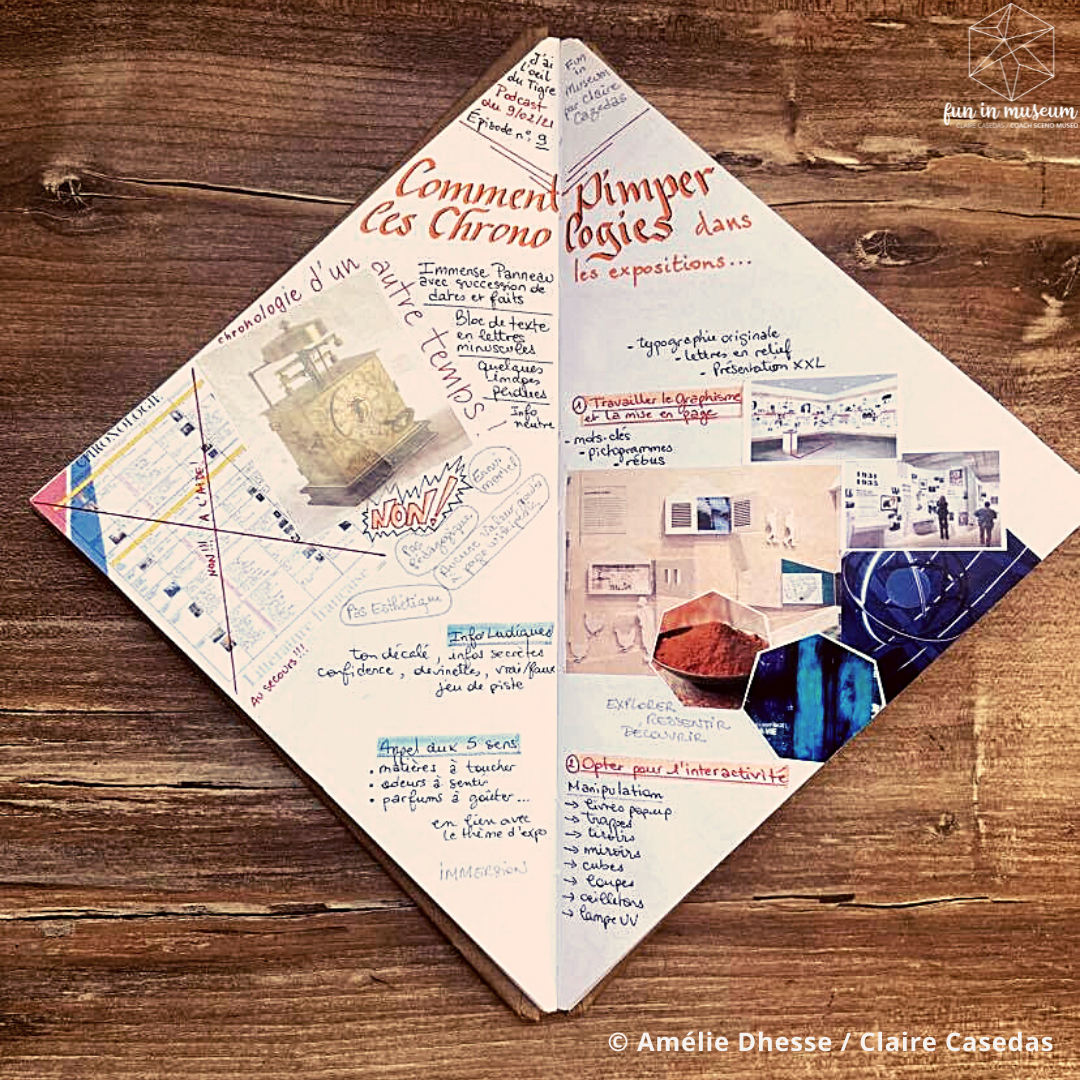 J'ai
l'oeil
du Tigre
Podcast
du 9/02/21
Épisode n° 9
Fun
in
Museum
par Claire
Casedas
fun in museum
CLAIRE CASEDAS / COACH SCENO MUSEO
Comment Pimper
les Chronologies dans
les expositions...
chronologie d'un autre temps !
Immense Panneau
avec succession de
dates et faits
Bloc de texte
en lettres
minuscules
quelques
images
perdues
Info
neutre
CHRONOLOGIE
NON!!! A L'AIDE!
Littérature française
AU SECOURS!!!
NON!
Pas
pédagogique
Pas Esthétique
Info Ludiques
ton décalé, infos secrètes
confidence, devinettes, vrai/faux
jeu de piste
Appel aux 5 sens
• matières à toucher
• odeurs à sentir
• parfums à goûter...
en lien avec
le thème d'expo
IMMERSION
- typographie originale
- lettres en relief
- Présentation XXL
① Travailler le Graphisme
et la mise en page
- mots-clés
- pictogrammes
- rébus
1931
1935
EXPLORER
RESSENTIR
DÉCOUVRIR
② Opter pour l'interactivité
Manipulation
→ livres pop-up
→ trappes
→ tiroirs
→ miroirs
→ cubes
→ loupes
→ oeilletons
→ lampe UV
© Amélie Dhesse / Claire Casedas